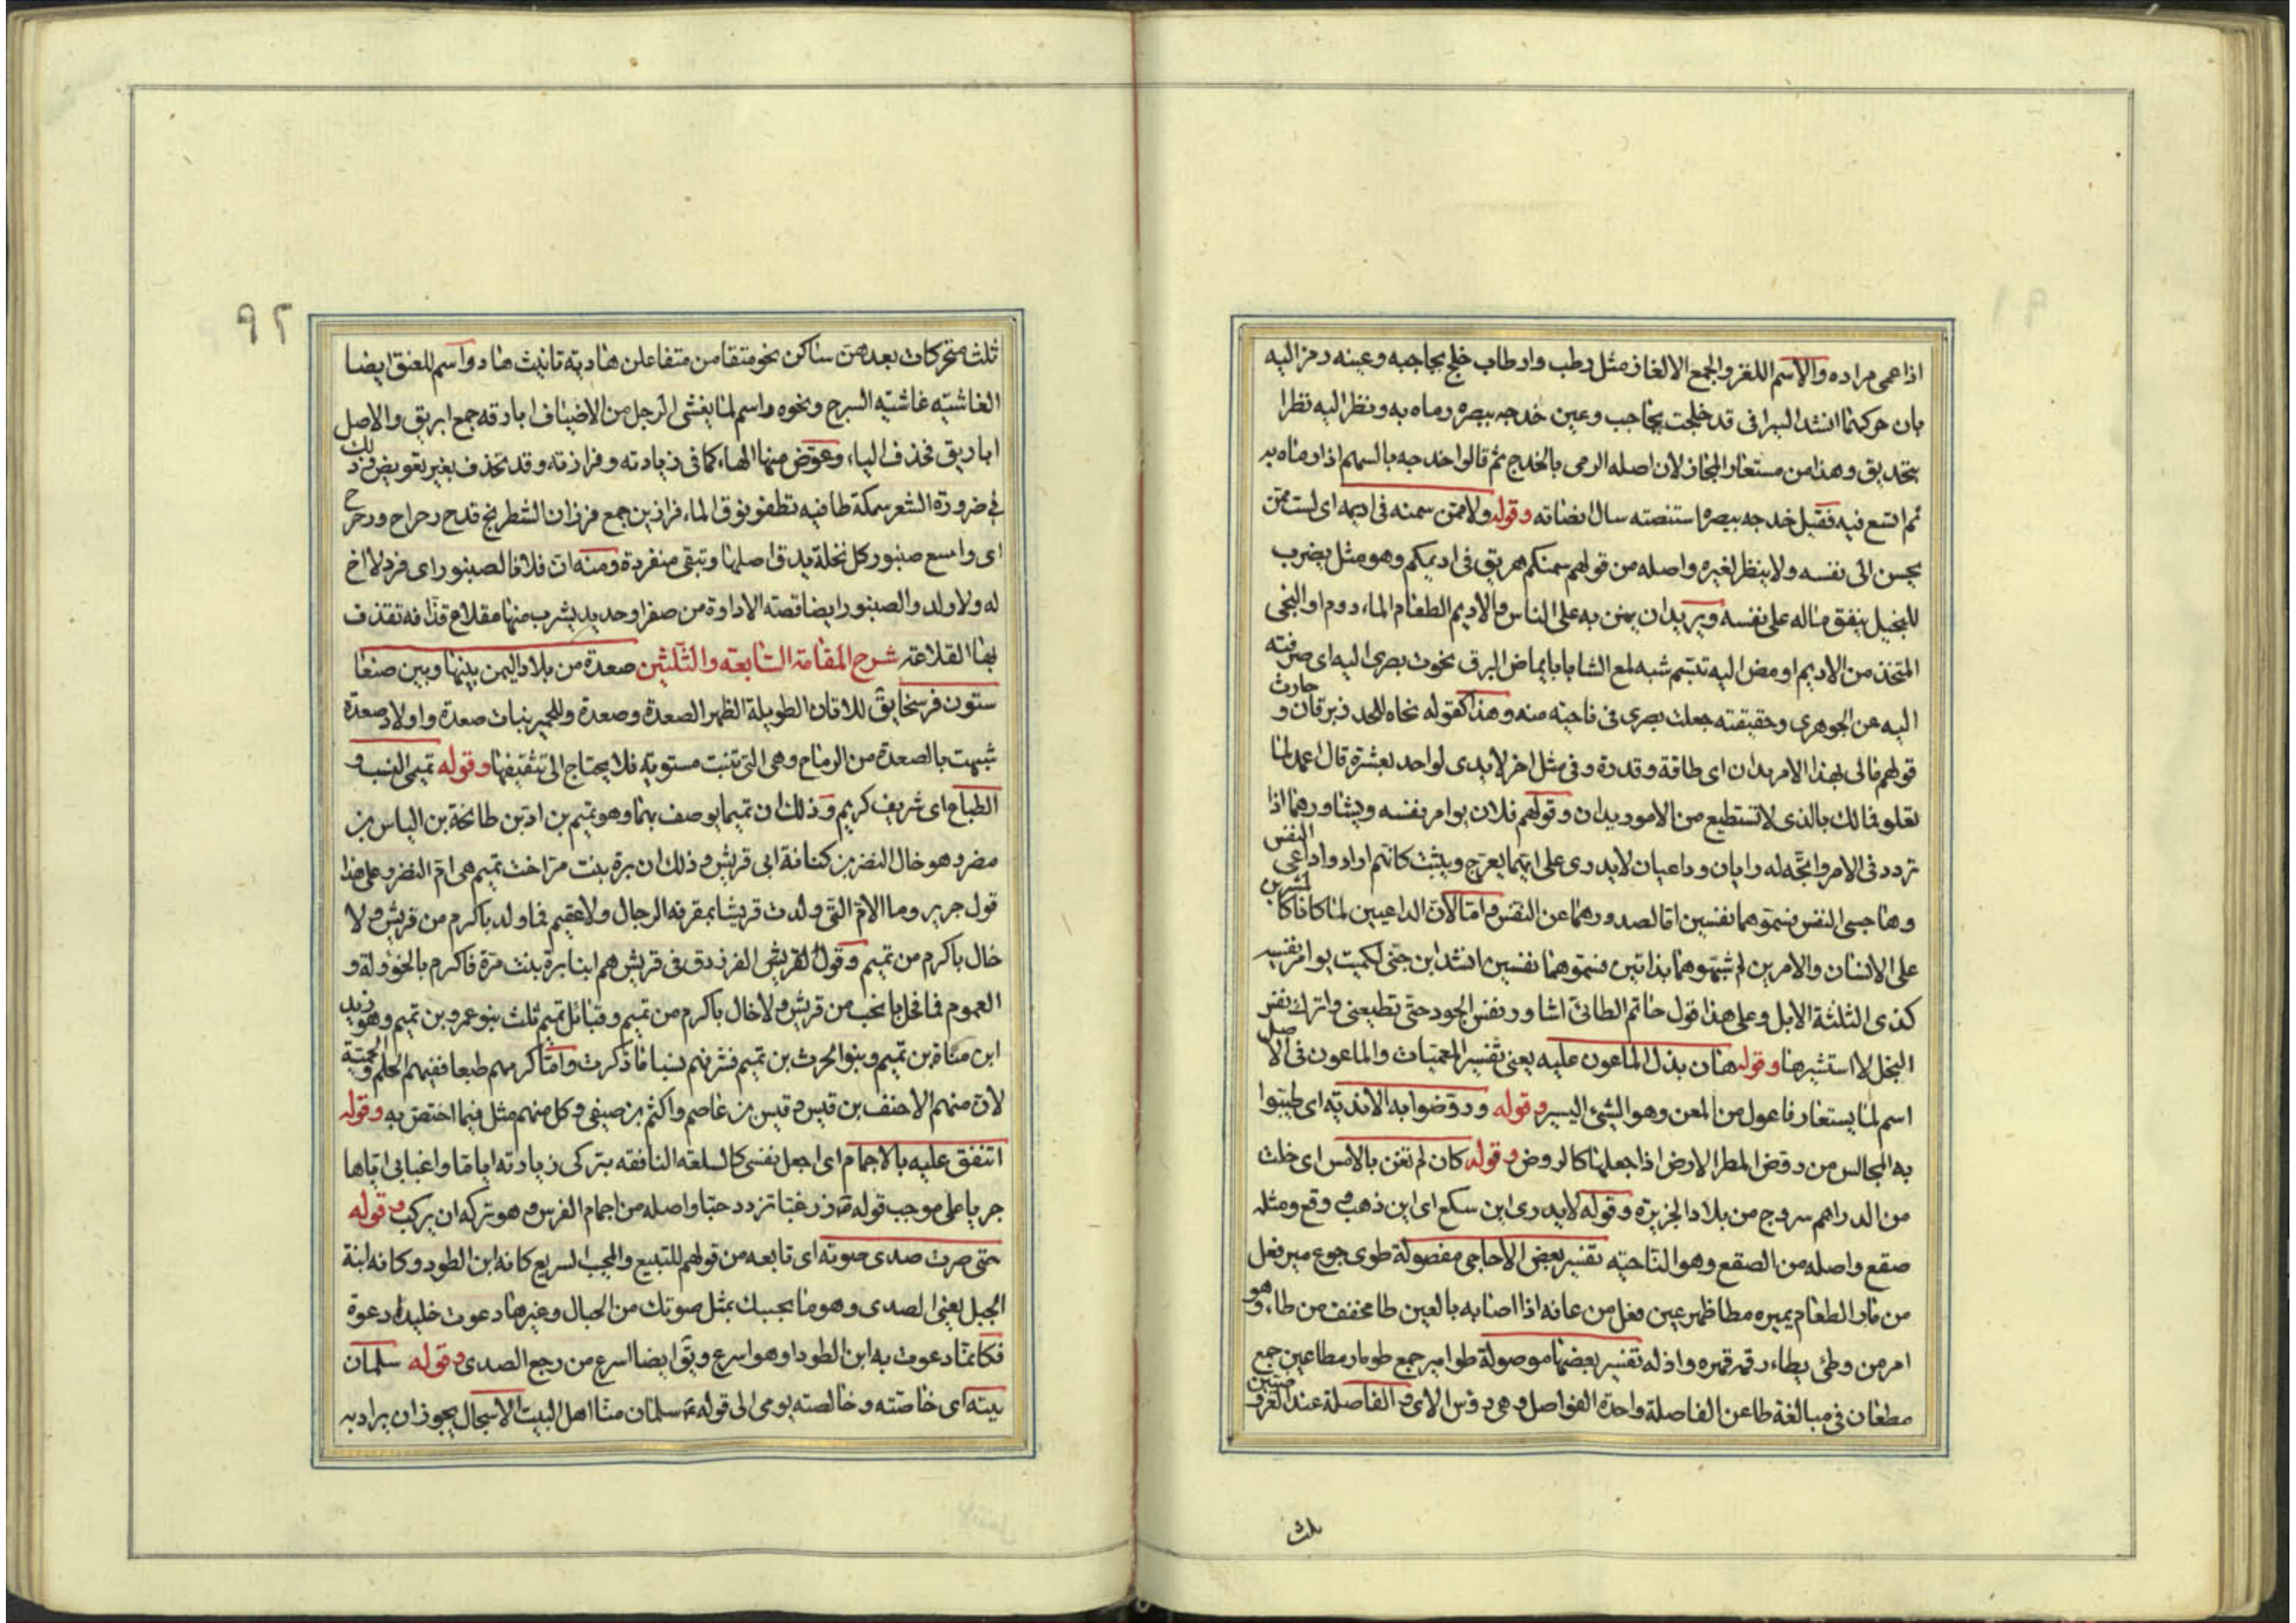 اذا عمى مراده والاسم اللغز والجمع الالغاز مثل رطب وارطاب خلج بحاجبه وعينه رمز اليه
بان حركهما انشد السيرافى قد خلجت بحاجب وعين خدجه ببصره رماه به ونظر اليه نظرا
بتحديق وهذا من مستعار المجاز لان اصله الرمى بالخدج ثم قالوا خدجه بالسهم اذا رماه به
ثم اتسع فيه فقيل خدجه ببصره استنصته سال انصاته وقوله ولا ممن سمنه فى اديمه اى لست ممن
يحسن الى نفسه ولا ينظر لغيره واصله من قولهم سمنكم هريق فى اديمكم وهو مثل يضرب
للبخيل ينفق ماله على نفسه ويريد ان يمن به على الناس والاديم الطعام الما دوم او النحى
المتخذ من الاديم اومض اليه تبتسم شبه لمع الثنايا بايماض البرق نحوت بصرى اليه اى صرفته
اليه عن الجوهرى وحقيقته جعلت بصرى فى ناحيته منه وهذا كقوله نحاه للحد زبرقان و حارث
قولهم مالى بهذا الامر يدان اى طاقة وقدرة وفى مثل اخر لا يدى لواحد بعشرة قال اعمد لما
تعلو فمالك بالذى لا تستطيع من الامور يدان وقولهم فلان يوامر نفسه ويشاورهما اذا
تردد فى الامر واتجه له رايان وداعيان لا يدرى على ايهما يعرج ويثبت كانهم ارادوا داعى النفس
وهاجسى النفس فسموهما نفسين اما لصدورهما عن النفس واما لان الداعيين لما كانا كالمشيرين
على الانسان والامرين لم شبهوهما بذاتين فسموهما نفسين انشد ابن جنى لكميت يوامر نفسيه
كذى الثلثة الابل وعلى هذا قول حاتم الطائى اشاور نفس الجود حتى تطيعنى واترك نفس
البخل لا استشيرها وقوله هان بذل الماعون عليه يعنى تفسير المعميات والماعون فى الاصل
اسم لما يستعار فاعول من المعن وهو الشئ اليسير وقوله وروضوا به الاندية اى طيبوا
به المجالس من روض المطر الارض اذا جعلها كالروض وقوله كان لم تغن بالامس اى خلت
من الدراهم سروج من بلاد الجزيرة وقوله لا يدرى اين سكع اى اين ذهب وقع ومثله
صقع واصله من الصقع وهو الناحية تفسير بعض الاحاجى مفصولة طوى جوع مير فعل
من مار الطعام يميره مطا ظهر عين فعل من عانه اذا اصابه بالعين طا مخفف من طاء وهو
امر من وطئ يطاء رقمه قمره واذله تفسير بعضها موصولة طوامير جمع طومار مطاعين جمع
مطعان فى مبالغة طاعن الفاصلة واحدة الفواصل وهى رؤس الاى والفاصلة عند العروضيين
ثلث
٩٢
ثلث متحركات بعدهن ساكن نحو متفا من متفاعلن هادية تانيث هاد واسم للعنق ايضا
الغاشية غاشية السرج ونحوه واسم لما يغشى الرجل من الاضياف ابارقه جمع ابريق والاصل
اباريق فحذف الياء وعوض منها الهاء كما فى زيادته وفرازنة وقد تحذف بغير تعويض وذلك
فى ضرورة الشعر سمكة طافية تطفو فوق الماء فرازين جمع فرزان الشطرنج قدح رحراح ورحرح
اى واسع صنبور كل نخلة يدق اصلها وتبقى منفردة ومنه ان فلانا لصنبور اى فرد لا اخ
له ولا ولد والصنبور ايضا قصبة الاداوة من صفر او حديد يشرب منها مقلاع قذافه تقذف
بها القلاعة شرح المقامة السابعة والثلثين صعدة من بلاد اليمن بينها وبين صنعا
ستون فرسخا يق للاتان الطويلة الظهر الصعدة وصعدة وللحمير بنات صعدة واولاد صعدة
شبهت بالصعدة من الرماح وهى التى تنبت مستوية فلا يحتاج الى تثقيفها وقوله تميمى النسب و
الطباع اى شريف كريم وذلك ان تميما يوصف بهما وهو تميم بن اد بن طابخة بن الياس بن
مضر وهو خال النضر بن كنانة ابى قريش وذلك ان برة بنت مر اخت تميم هى ام النضر وعلى هذا
قول جرير وما الام التى ولدت قريشا بمقرفة الرجال ولا عقيم فما ولد باكرم من قريش ولا
خال باكرم من تميم وقول القريشى الفرزدق فى قريش هم ابنا برة بنت مرة فاكرم بالخؤولة و
العموم فما فحل بانجب من قريش ولا خال باكرم من تميم وقبائل تميم ثلث بنو عمرو بن تميم وهو زيد
ابن مناة بن تميم وبنو الحرث بن تميم فشرفهم نسبا ما ذكرت واما كرمهم طبعا ففيهم الحلم والحمية
لان منهم الاحنف بن قيس وقيس بن عاصم واكثم بن صيفى وكل منهم مثل فيما اختص به وقوله
اتنفق عليه بالاجمام اى اجعل نفسى كالسلعة النافقه بتركى زيادته اياما واغبابى اياها
جريا على موجب قوله زر غبا تزدد حبا واصله من اجمام الفرس وهو تركه ان يركب وقوله
حتى صرت صدى صوته اى تابعه من قولهم للتبيع والمجيب السريع كانه ابن الطود وكانه ابنة
الجبل يعنى الصدى وهو ما يجيبك بمثل صوتك من الجبال وغيرها دعوت خليدا دعوة
فكانما دعوت به ابن الطود او هو اسرع ويق ايضا اسرع من رجع الصدى وقوله سلمان
بيته اى خاصته وخالصته يومى الى قوله سلمان منا اهل البيت الاسجال يجوز ان يراد به